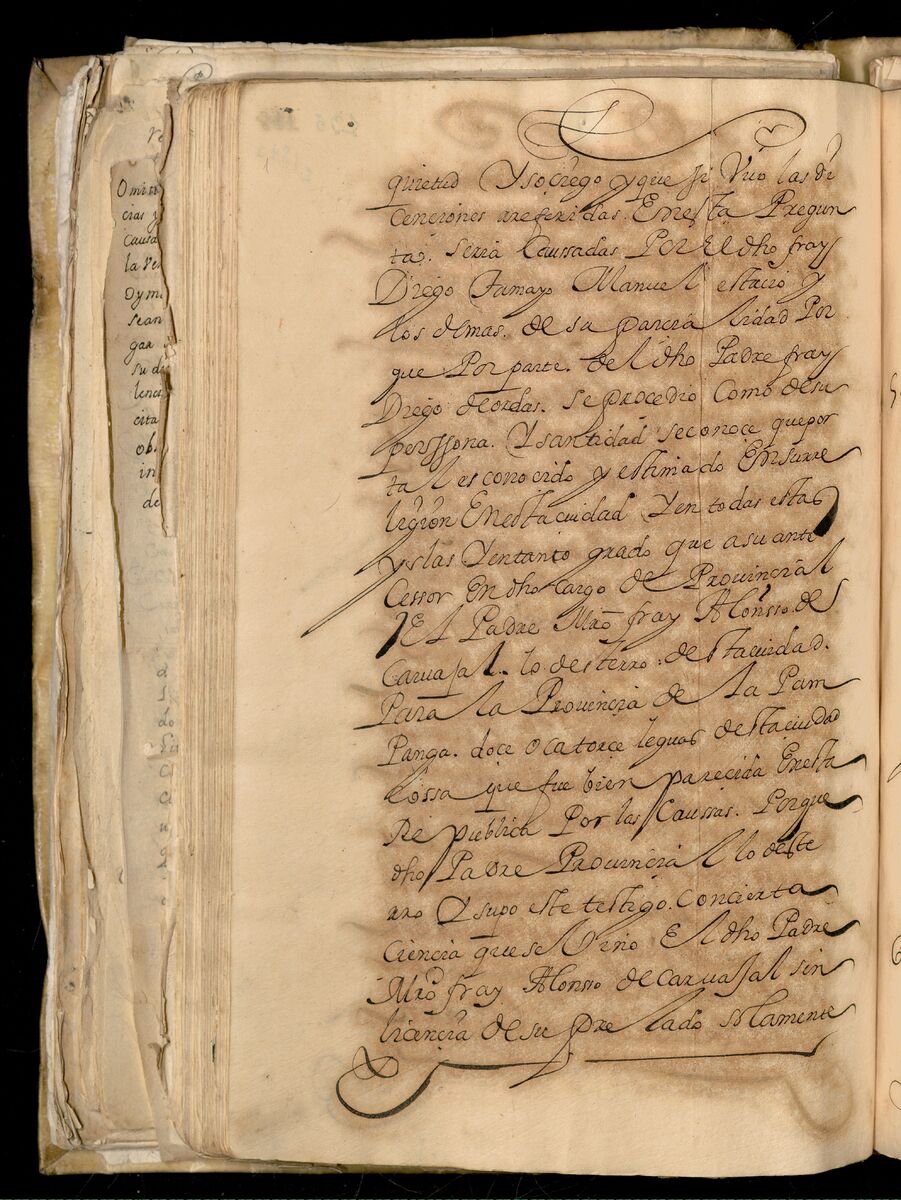 quietud Ysociego y que si Vuo las di
cenciones rreferidas. Enesta Pregun
ta. seria Caussadas Por El dho fray
Diego Tamayo Manuel estacio y
los demas. de su parcialidad Por
que Por parte. del dho Padre fray
Diego deordas. se procedio Como desu
perssona. Y santidad seconoce quepor
tal es conocido y estimado Ensurre
ligion Enestaciudad Yen todas estas
yslas Yentanto grado que asu ante
Cessor En dho Cargo de Provincial
El Padre Mro fray Alonsso de
Carvajal. lo desterro. destaciudad.
Para la Provincia de la Pam
Panga. doce o catorce leguas destaciudad
Cossa que fue bien parecida Enesta
Republica Por las Caussas. Porque
dho Padre Provincial lo deste
rro Y supo este testigo. Concierta
Ciencia quese Vino El dho Padre
Mro fray Alonsso de carvajal sin
licencia de su prelado solamente
Omiti
cias y
Causa
la Ve
Oymi
sean
gar
su d
lenci
cita
ob.
in
de